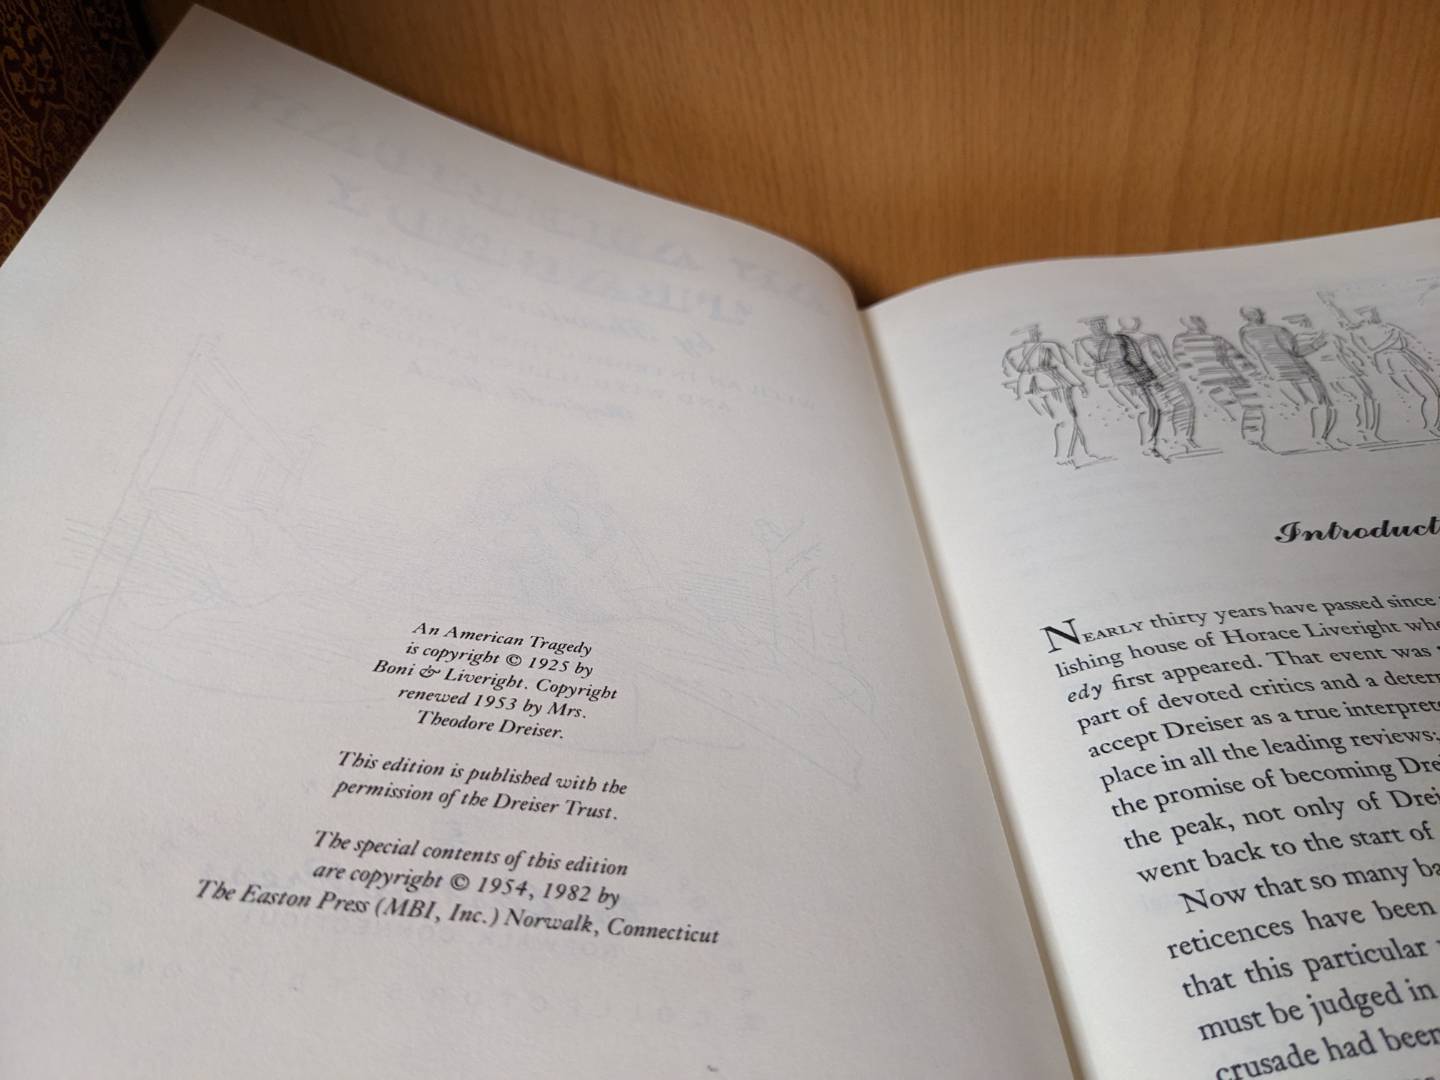 An American Tragedy
is copyright © 1925 by
Boni & Liveright. Copyright
renewed 1953 by Mrs.
Theodore Dreiser.
This edition is published with the
permission of the Dreiser Trust.
The special contents of this edition
are copyright © 1954, 1982 by
The Easton Press (MBI, Inc.) Norwalk, Connecticut
Introduct
NEARLY thirty years have passed since
lishing house of Horace Liveright
edy first appeared. That event was
part of devoted critics and a determ
accept Dreiser as a true interpret
place in all the leading reviews;
the promise of becoming Drei
the peak, not only of Drei
went back to the start of
Now that so many ba
reticences have been
that this particular
must be judged in
crusade had been